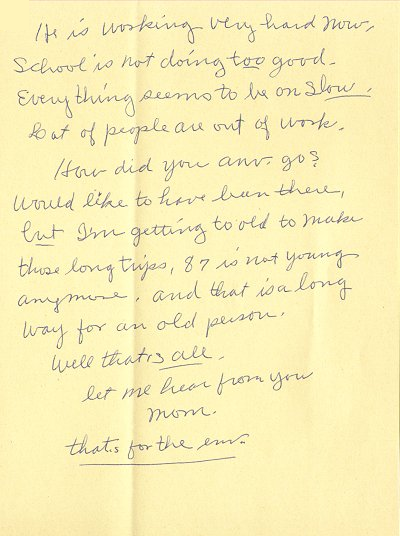 He is working very hard now,
School is not doing too good.
Everything seems to be on Slow.
Lot of people are out of work.
How did you anv. go?
Would like to have been there,
but I'm getting to old to make
those long trips, 87 is not young
anymore. and that is a long
way for an old person.
Well that is all.
let me hear from you
Mom.
that.s for the env.